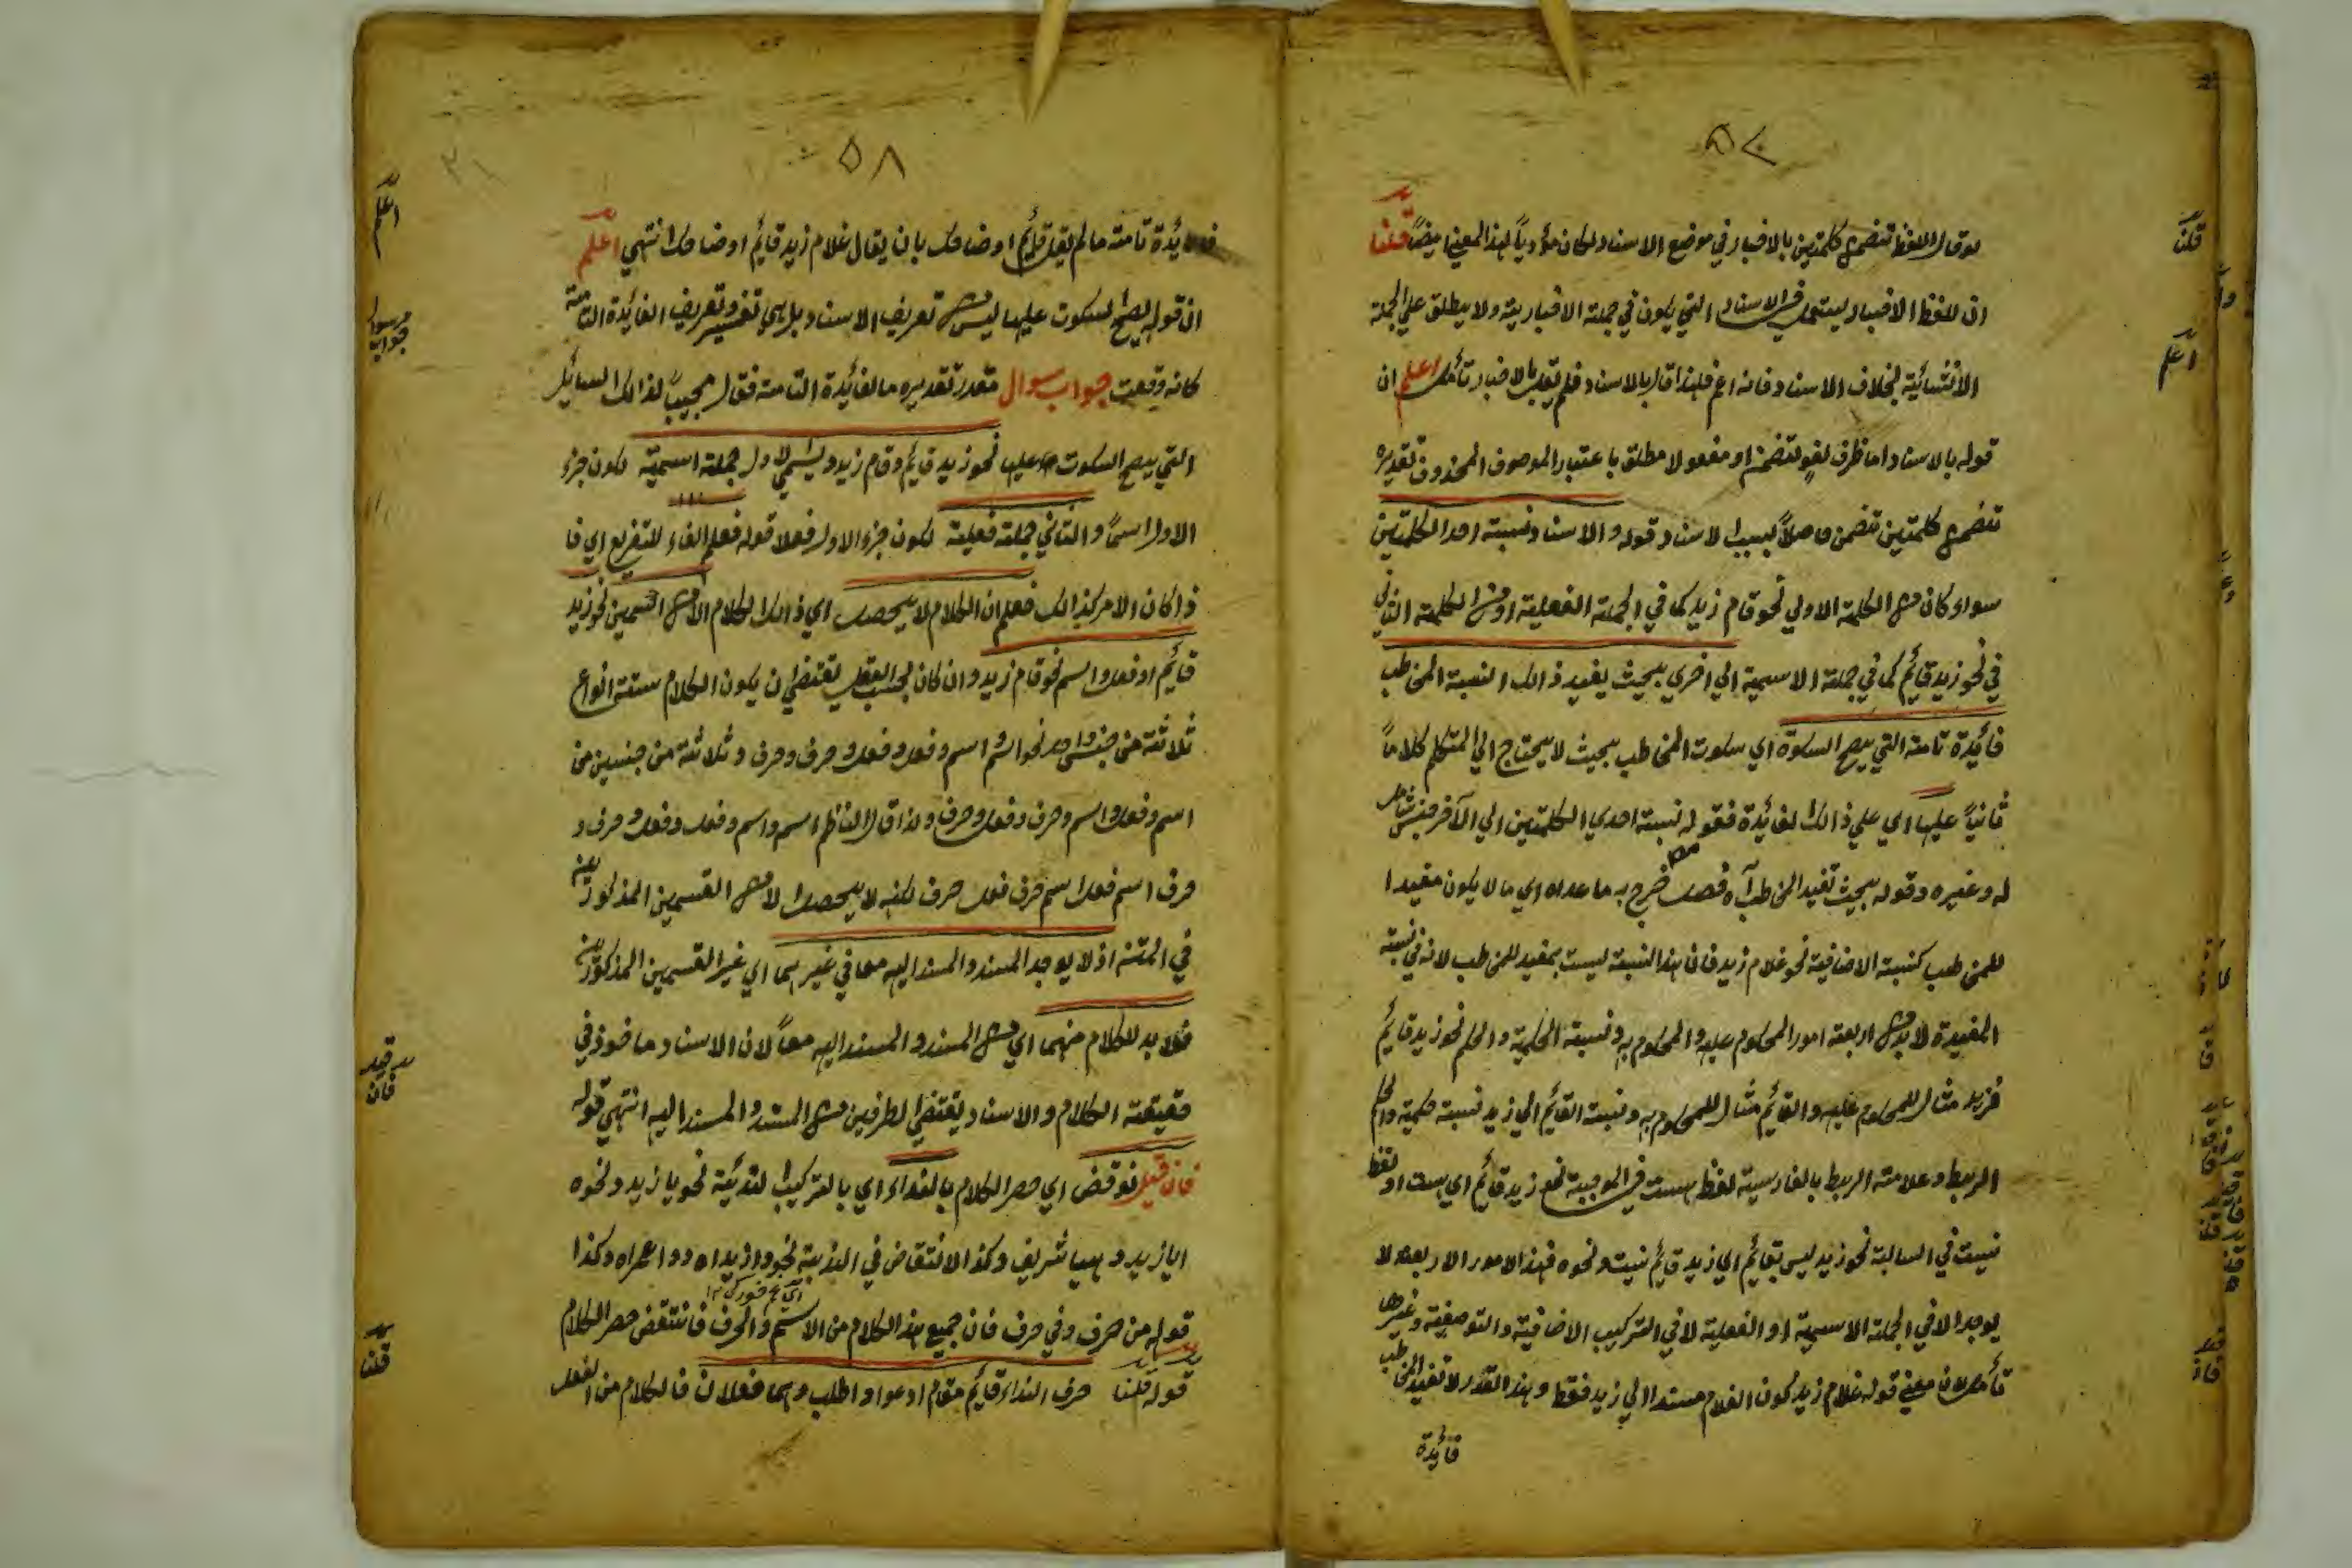 ٥٧
لو قال اللفظ تضمن كلمتين بالاخبار في موضع الاسناد لكان مؤدياً لهذا المعني ايضاً قلنا
ان لفظ الاخبار يستعمل في الاسناد التي يكون في جملة الاخبارية ولا يطلق علي الجملة
الانشائية بخلاف الاسناد فانه اعم فلهذا قال بالاسناد فلم يقل بالاخبار تأمل اعلم ان
قوله بالاسناد اما ظرف لغو لتضمن او مفعولا مطلق باعتبار الموصوف المحذوف تقديره
تضمن كلمتين تضمن حاصلاً بسبب الاسناد قوله والاسناد نسبة احد الكلمتين
سواء كان من الكلمة الاولي نحو قام زيد كما في الجملة الفعلية او من الكلمة الثاني
في نحو زيد قائم كما في جملة الاسمية الي اخري بحيث يفيد ذالك النسبة المخاطب
فائدة تامة التي يصح السكوة اي سكوت المخاطب بحيث لا يحتاج الي المتكلم كلاماً
ثانياً عليها اي علي ذالك الفائدة فقوله نسبة احدي الكلمتين الي الآخر جنس شامل
له وغيره وقوله بحيث تفيد المخاطب آه فصل خرج به ما عداه اي ما لا يكون مفيدا
للمخاطب كنسبة الاضافية نحو غلام زيد فان هذا النسبة ليست بمفيد للمخاطب لانه في نسبة
المفيدة لا بد من اربعة امور المحكوم عليه والمحكوم به ونسبة الحكمية والحكم نحو زيد قائم
فزيد مثال للمحكوم عليه والقائم مثال للمحكوم به ونسبة القائم الي زيد نسبة حكمية والحكم
الربط وعلامة الربط بالفارسية لفظ هست في الموجبة نحو زيد قائم اي هست او لفظ
نيست في السالبة نحو زيد ليس بقائم اي زيد قائم نيست ونحوه فهذا الامور الاربعة لا
يوجد الا في الجملة الاسمية او الفعلية لا في التركيب الاضافية والتوصفية وغيرها
تأمل لان معني قوله غلام زيد كون الغلام مسندا الي زيد فقط وبهذا القدر لا تفيد المخاطب
فائدة
قلنا
اعلم
٥٨
فائدة تامة ما لم يقل قائم او ضاحك بان يقال غلام زيد قائم او ضاحك انتهي اعلم
ان قوله يصح السكوت عليها ليس من تعريف الاسناد بل هي تفسير وتعريف الفائدة التامة
كانه وقعت جواب سوال مقدر تقديره ما لفائدة التامة فقال مجيباً لذالك السائل
التي يصح السكوت عليها نحو زيد قائم وقام زيد ويسمي الاول جملة اسمية لكون جزء
الاول اسماً والثاني جملة فعلية لكون جزء الاول فعلا قوله فعلم الفاء للتفريع اي فا
ذا كان الامر كذالك فعلم ان الكلام لا يحصل اي ذالك الكلام الا من اسمين نحو زيد
قائم او فعل واسم نحو قام زيد وان كان بحسب العقل يقتضي ان يكون الكلام ستة انواع
ثلاثة من جنس واحد نحو اسم واسم وفعل وفعل وحرف وحرف وثلاثة من جنسين من
اسم وفعل واسم وحرف وفعل وحرف ولذا قال الناظم اسم واسم وفعل وفعل وحرف و
حرف اسم فعل اسم حرف فعل حرف لكنه لا يحصل الا من القسمين المذكورين
في المتن اذ لا يوجد المسند والمسند اليه معا في غيرهما اي غير القسمين المذكورين
فلا بد للكلام منهما اي من المسند والمسند اليه معاً لان الاسناد ماخوذ في
حقيقة الكلام والاسناد يقتضي الطرفين من المسند والمسند اليه انتهي قوله
فان قيل نوقض اي حصر الكلام بالنداء اي بالتركيب الندائية نحو يا زيد ونحوه
ايا زيد وهيا شريف وكذا الانتقاض في الندبة نحو وا زيداه ووا عمراه وكذا
قوله من حرف وفي حرف فان جميع هذا الكلام من الاسم والحرف فانتقض حصر الكلام
قوله قلنا حرف النداء قائم مقام ادعوا واطلب وهما فعلان فالكلام من الفعل
اعلم
جواب سوال
فان قيل
قلنا